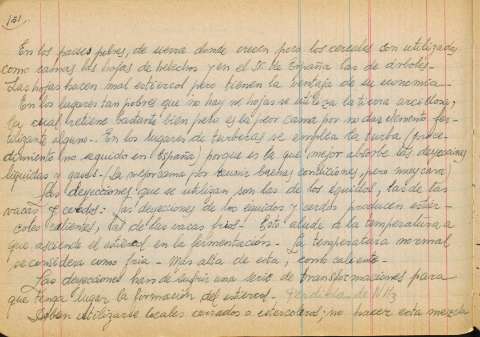 121.
En los paises pobres, de sierra donde crecen poco los cereales son utilizadas
como camas las hojas de helechos y en el N. de España las de árboles.-
Las hojas hacen mal estiercol pero tienen la ventaja de su economia.-
En los lugares tan pobres que no hay ni hojas se utiliza la tierra arcillosa,
la cual retiene bastante bien pero es la peor cama por no dar elemento fer-
tilizante alguno.- En los lugares de turberas se emplea la turba (proce-
dimiento no seguido en España) porque es la que mejor absorbe las deyecciones
liquidas y gases.- La mejor cama por reunir buenas condiciones, pero muy cara)
Las deyecciones que se utilizan son las de los équidos, las de las
vacas y cerdos.- Las deyecciones de los équidos y cerdos producen estier-
coles calientes, las de las vacas frios.- Esto alude a la temperatura a
que asciende el estiercol en la fermentación.- La temperatura normal
se considera como fria.- Más alta de esta, como caliente.-
Las deyecciones han de sufrir una serie de transformaciones para
que tenga lugar la formación del estiercol.- Perdidas de NH3
Deben utilizarse locales cerrados o estercoleros; no hacer esta mezcla